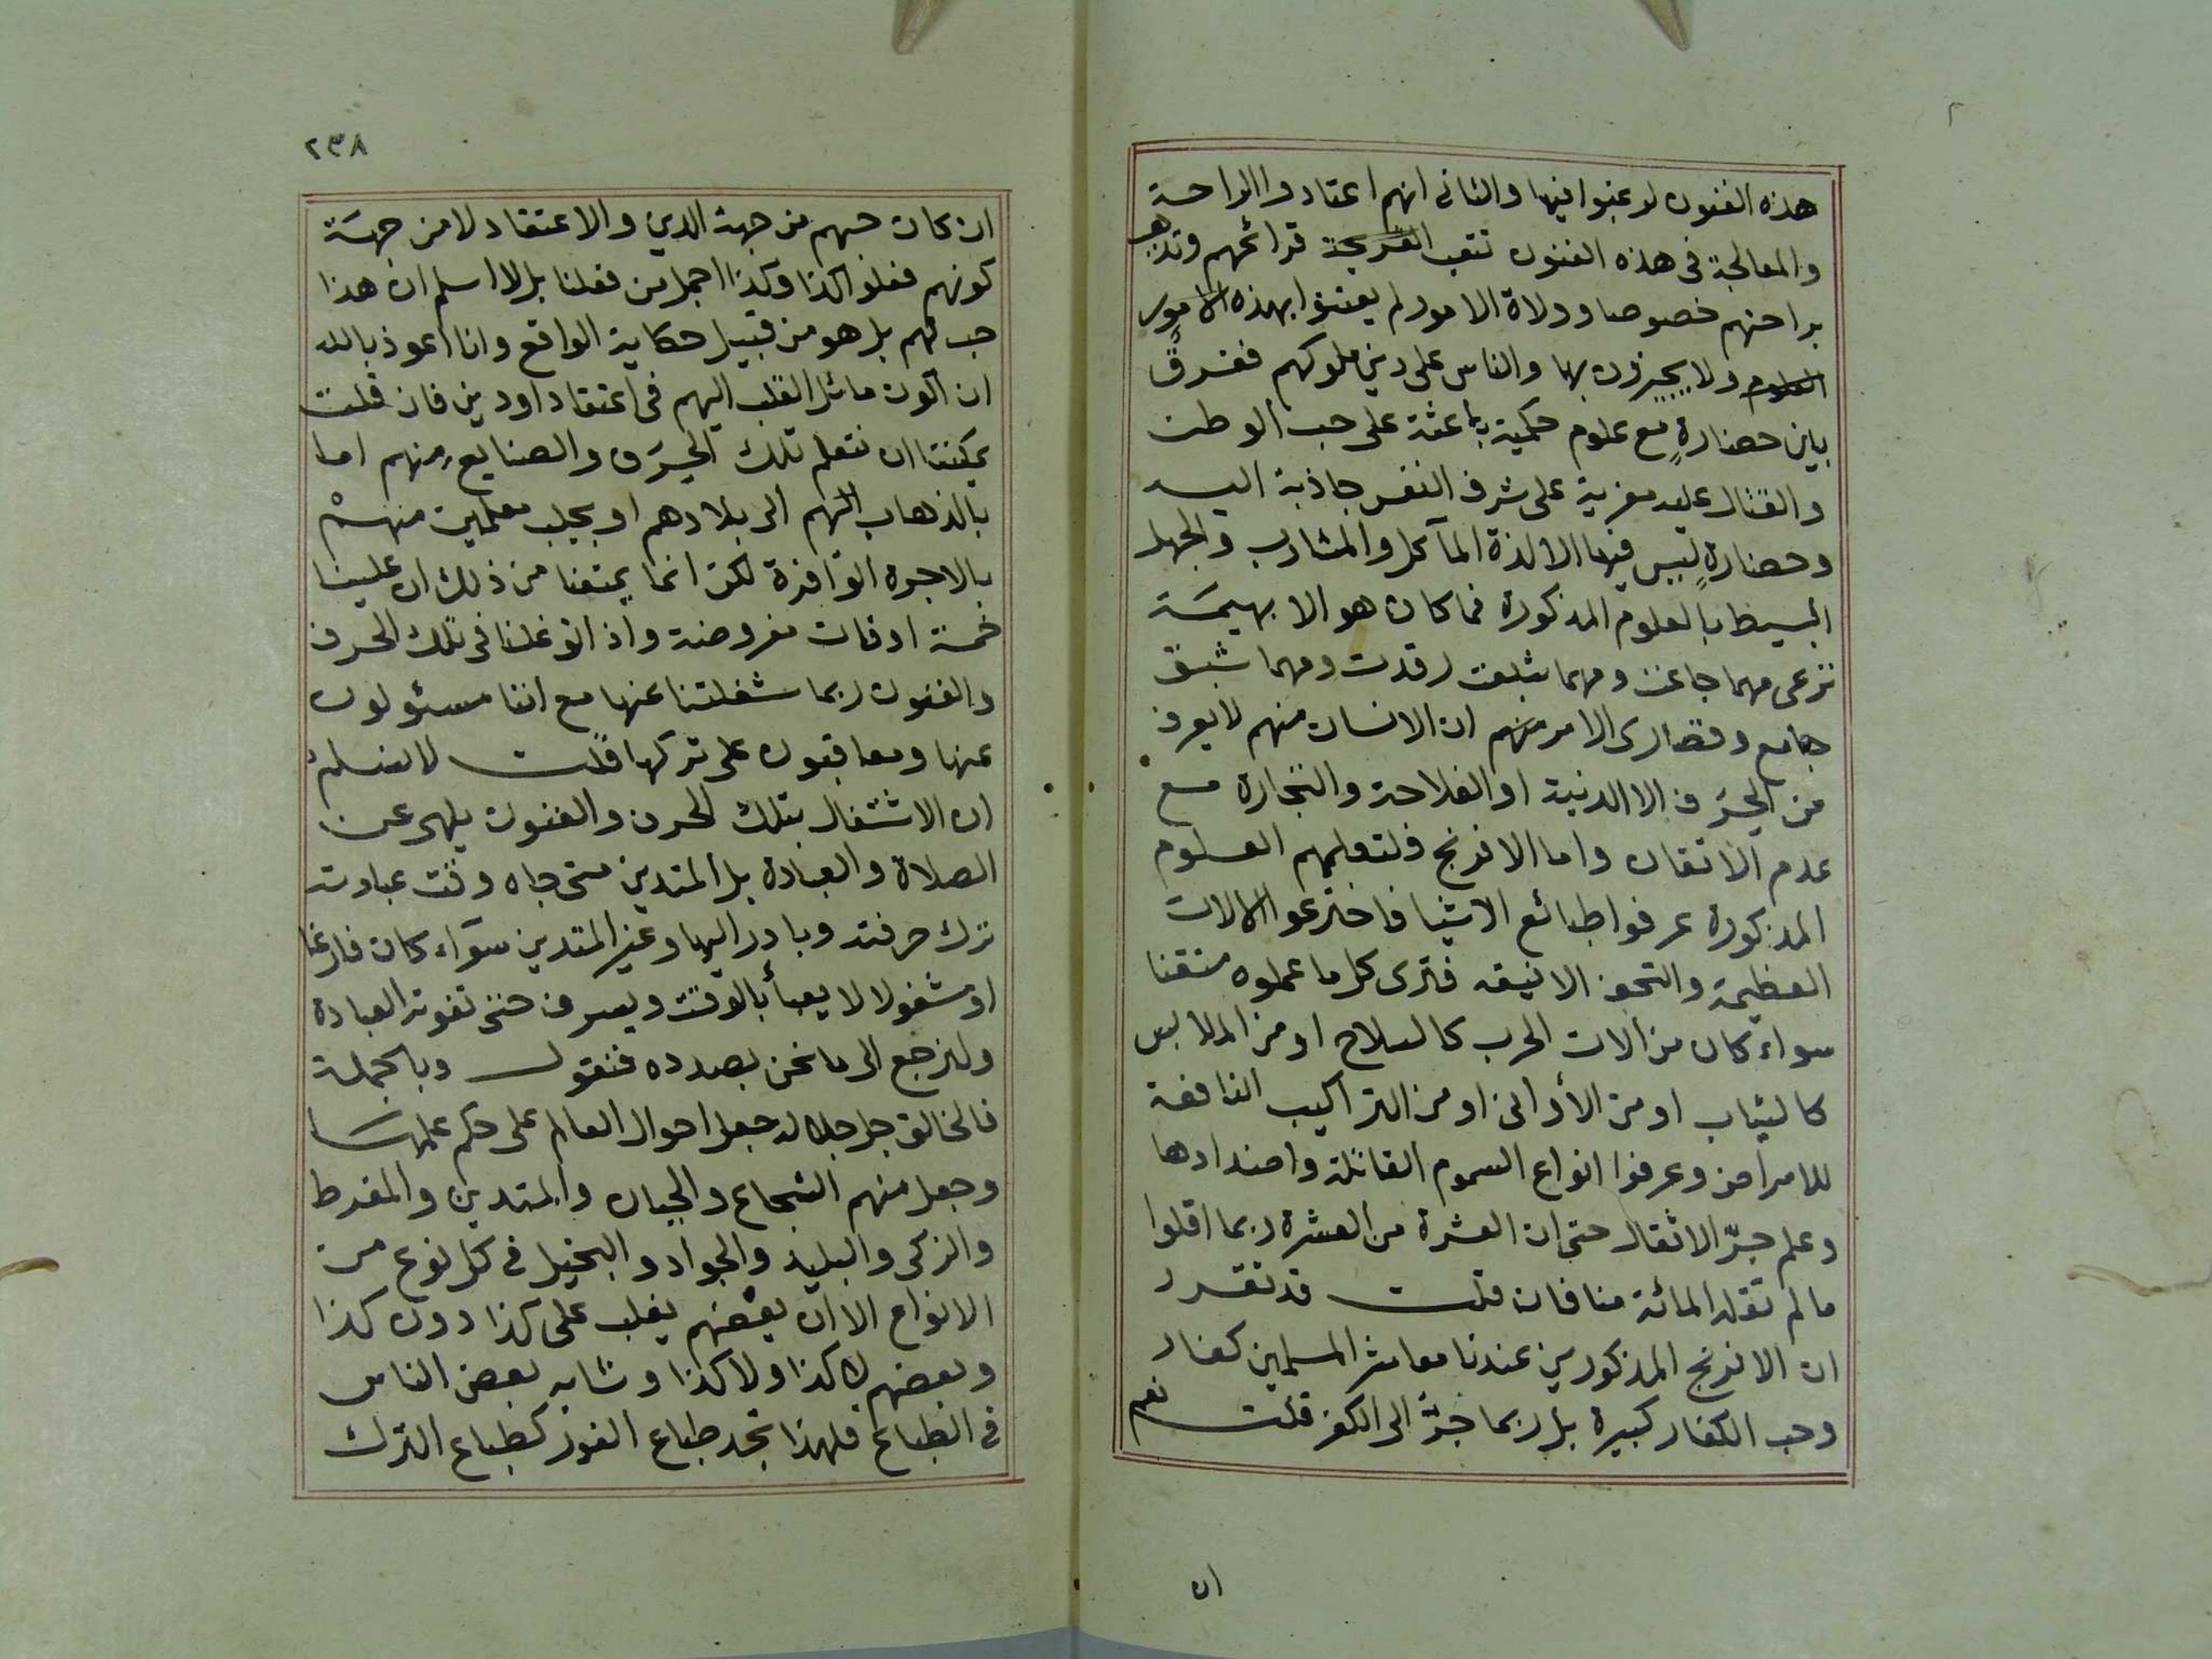 هذه الفنون لرغبوا فيها والثانى انهم اعتادوا الراحة
والمعالجة فى هذه الفنون تتعب القريحة قرائحهم وتذهب
براحتهم خصوصا وولاة الامور لم يعتنوا بهذه الامور
العلوم ولا يجيزون بها والناس على دين ملوكهم ففرقٌ
باين حضارةٍ مع علوم حكمية باعثة على حب الوطن
والقتال عليه مغرية على شرف النفس جاذبة اليه
وحضارةٍ ليس فيها الا لذة المآكل والمشارب والجهل
البسيط بالعلوم المذكورة فما كان هو الا بهيمة
ترعى مهما جاعت ومهما شبعت رقدت ومهما شبق
جامع وقصارى الامر منهم ان الانسان منهم لا يعرف
من الحِرَف الا الدنية او الفلاحة والتجارة مع
عدم الاتقان واما الافرنج فلتعلمهم العلوم
المذكورة عرفوا طبائع الاشيا فاخترعوا الالات
العظيمة والتحف الانيقه فترى كل ما عملوه متقنا
سواء كان من آلات الحرب كالسلاح او من الملابس
كالثياب او من الأوانى او من التراكيب النافعة
للامراض وعرفوا انواع السموم القاتلة واضدادها
وعلم جرّ الاثقال حتى ان العشرة من العشرة ربما اقلوا
ما لم تقله المائة منا فان قلت قد تقرر
ان الافرنج المذكورين عندنا معاشر المسلمين كفار
وحب الكفار كبيرة بل ربما جرّ الى الكفر قلت نعم
ان
٢٣٨
ان كان حبهم من جهة الدين والاعتقاد لا من جهة
كونهم فعلوا كذا وكذا اجمل من فعلنا بل لا اسلم ان هذا
حب لهم بل هو من قبيل حكاية الواقع وانا اعوذ بالله
ان اكون مائل القلب اليهم فى اعتقاد او دين فان قلت
يمكننا ان نتعلم تلك الحِرَف والصنايع منهم اما
بالذهاب اليهم الى بلادهم او بجلب معلمين منهم
بالاجرة الوافرة لكن انما يمنعنا من ذلك ان علينا
خمسة اوقات مفروضة واذا توغلنا فى تلك الحرف
والفنون ربما شغلتنا عنها مع اننا مسئولون
عنها ومعاقبون على تركها قلت لا نسلم
ان الاشتغال بتلك الحرف والفنون يلهى عن
الصلاة والعبادة بل المتدين متى جاه وقت عبادته
ترك حرفته وبادر اليها وغير المتدين سواء كان فارغا
او مشغولا لا يعبأ بالوقت ويسرف حتى تفوته العبادة
ولنرجع الى ما نحن بصدده فنقول وبالجملة
فالخالق جل جلاله جعل احوال العالم على حكم علمها
وجعل منهم الشجاع والجبان والمتدين والمفرط
والزكى والبليد والجواد والبخيل فى كل نوع من
الانواع الا ان بعضهم يغلب على كذا دون كذا
وبعضهم لا كذا ولا كذا وشابه بعض الناس
فى الطبائع فلهذا تجد طباع الغور كطباع الترك